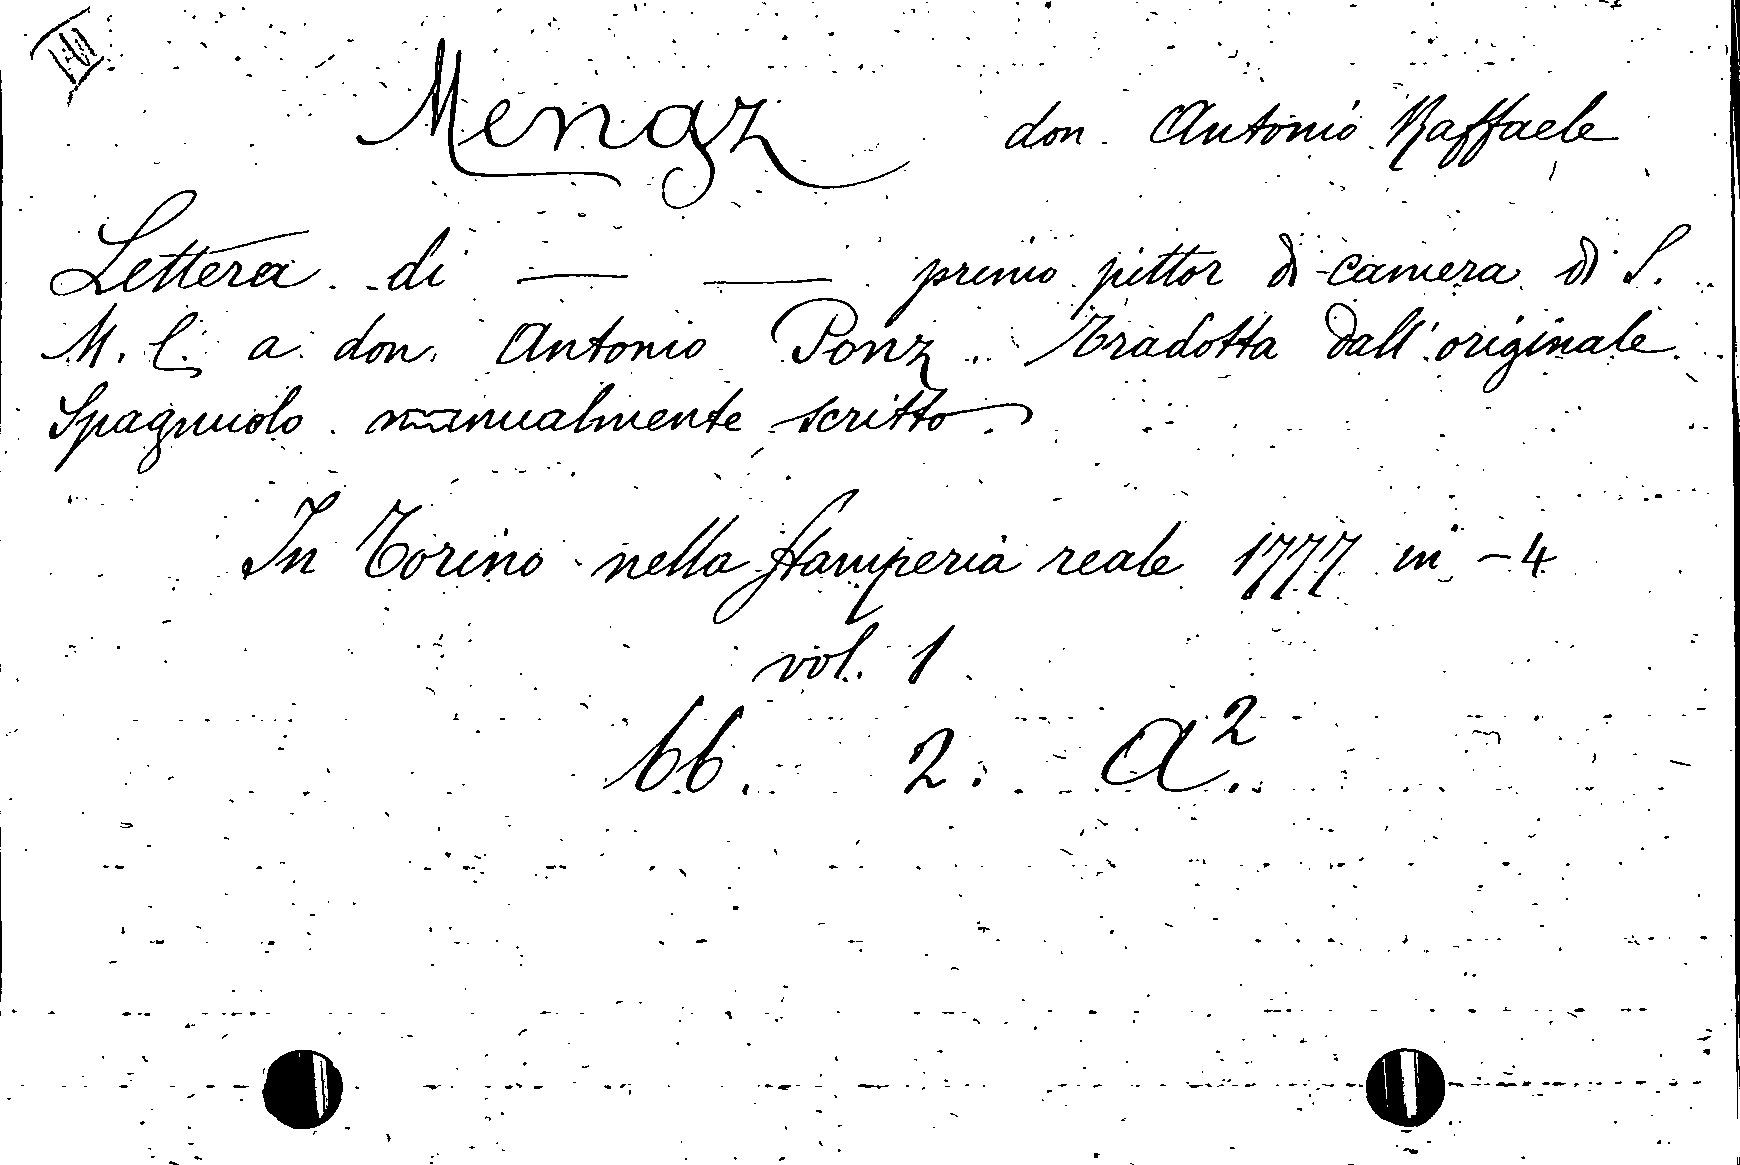 Mengz don Antonio Raffaele
Lettera di — — primo pittor di camera di S.
M. C. a don Antonio Ponz Tradotta dall'originale
Spagnuolo manualmente scritto.
In Torino nella Stamperia reale 1777 in -4
vol. 1
bb. 2. a².